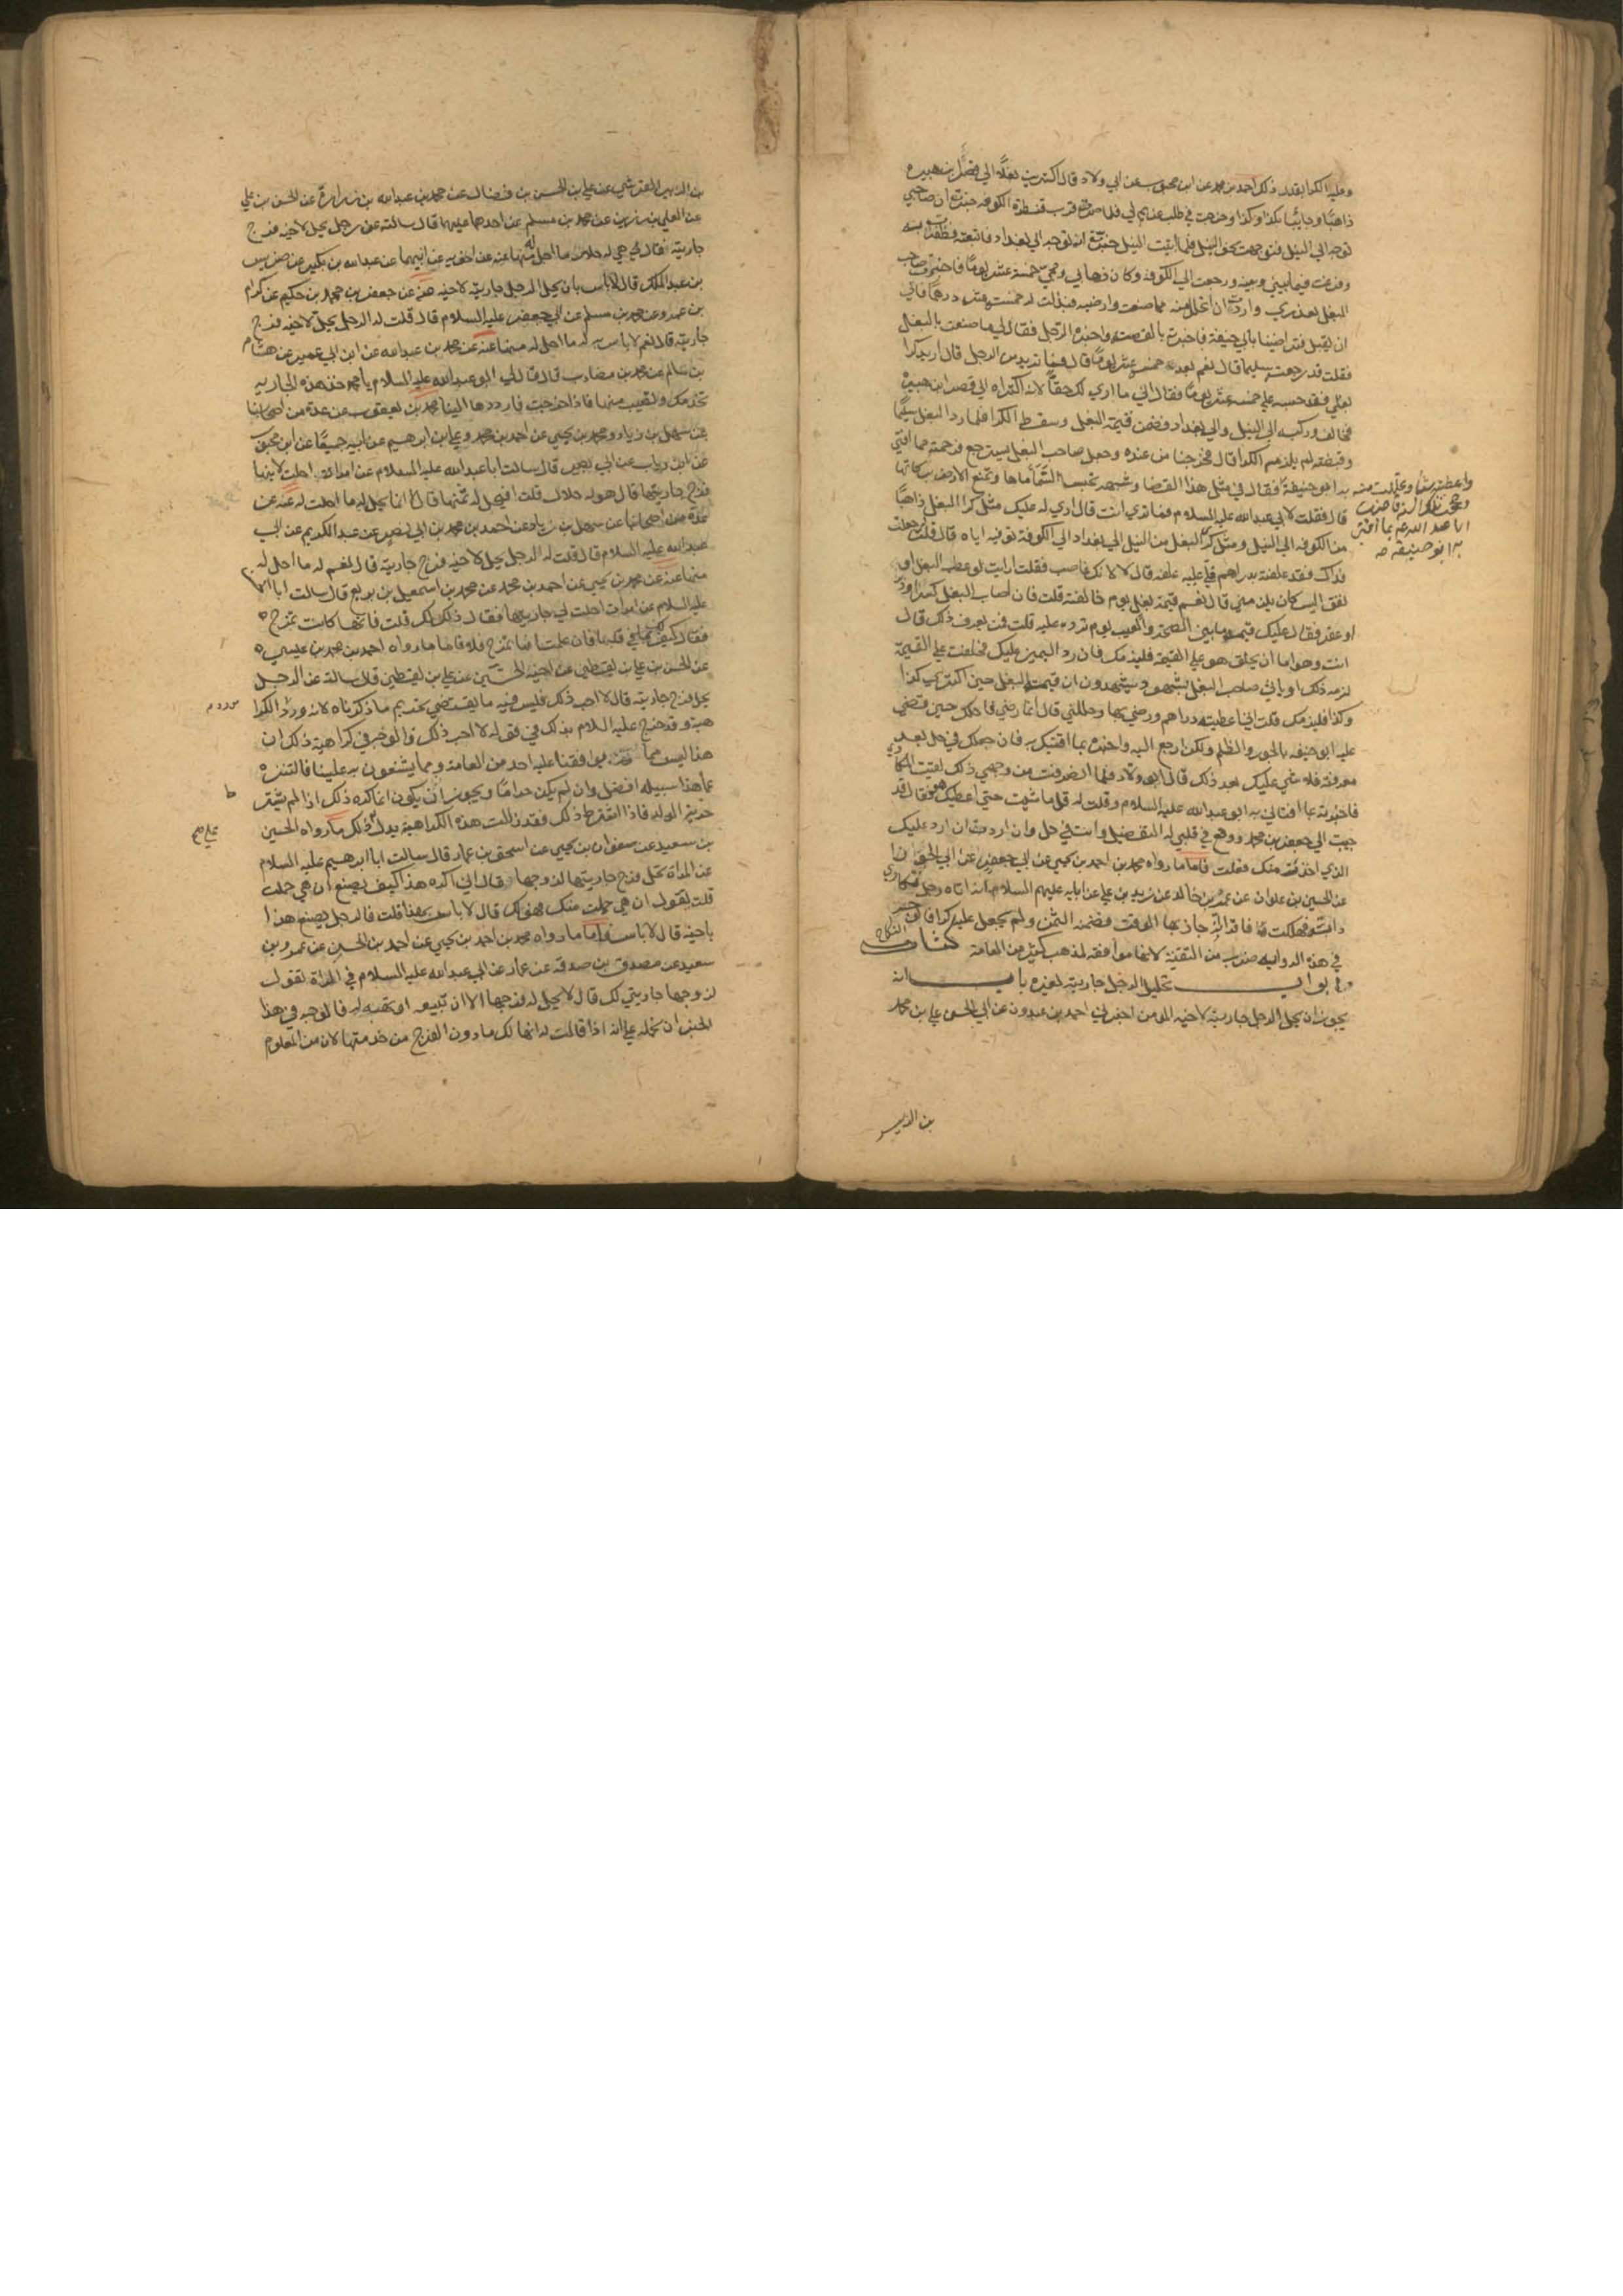 وعليه الكرا بقدر ذلك احمد بن محمد عن ابن محبوب عن ابي ولاد قال اكتريت بغلا الي قصر ابن هبيرة
ذاهبا وجائيا بكذا وكذا وخرجت في طلب غريم لي فلما صرت قرب قنطرة الكوفه خبرت ان صاحبي
توجه الي النيل فتوجهت نحو النيل فلما اتيت النيل خبرت انه توجه الي بغداد فاتبعته وظفرت به
وفرغت فيما بيني وبينه ورجعت الي الكوفه وكان ذهابي ومجي خمسة عشر يوما فاخبرت صاحب
البغل بعذري واردت ان اتحلل منه مما صنعت وارضيه فبذلت له خمسة عشر درهما فابي
ان يقبل فتراضينا بابي حنيفة فاخبرته بالقصة واخبره الرجل فقال لي ما صنعت بالبغل
فقلت قد رجعته سليما قال نعم بعد خمسة عشر يوما قال فما تريد من الرجل قال اريد كرا
بغلي فقد حبسه علي خمسة عشر يوما فقال اني ما اري لك حقا لانه اكتراه الي قصر ابن هبيرة
فخالف وركبه الي النيل والي بغداد فضمن قيمة البغل وسقط الكرا فلما رد البغل سليما
وقبضته لم يلزمه الكرا قال فخرجنا من عنده وجعل صاحب البغل يسترجع فرحمته مما افتي
به ابو حنيفة فقال في مثل هذا القضا وشبهه تحبس السماء ماها وتمنع الارض بركاتها
واعطيته شيئا وتحللت منه
وحججت تلك السنة فاخبرت
ابا عبد الله ع بما افتي
به ابو حنيفة صح
قال فقلت لابي عبد الله عليه السلام فما تري انت قال اري له عليك مثل كرا البغل ذاهبا
من الكوفه الي النيل ومثل كرا البغل من النيل الي بغداد ومن بغداد الي الكوفة توفيه اياه قال قلت جعلت
فداك فقد علفته بدراهم فلي عليه علفه قال لا لانك غاصب فقلت ارايت لو عطب البغل او
نفق اليس كان يلزمني قال نعم قيمة بغل يوم خالفته قلت فان اصاب البغل كسر او دبر
او عقر فقال عليك قيمة ما بين الصحة والعيب يوم ترده عليه قلت فمن يعرف ذلك قال
انت وهو اما ان يحلف هو علي القيمة فيلزمك فان رد اليمين عليك فحلفت علي القيمة
لزمه ذلك او ياتي صاحب البغل بشهود يشهدون ان قيمة البغل حين اكتري كذا
وكذا فيلزمك قلت اني اعطيته دراهم ورضي بها وحللني قال انما رضي فاحلك حين قضي
عليه ابو حنيفه بالجور والظلم ولكن ارجع اليه واخبره بما افتيتك به فان جعلك في حل بعد
معرفته فلا شي عليك بعد ذلك قال ابو ولاد فلما انصرفت من وجهي ذلك لقيت المكاري
فاخبرته بما افتاني به ابو عبد الله عليه السلام وقلت له قل ما شيت حتي اعطيكه فقال قد
حببت الي جعفر بن محمد ووقع في قلبي له التفضيل وانت في حل وان اردت ان ارد عليك
الذي اخذته منك فعلت فاما ما رواه محمد بن احمد بن يحيي عن ابي جعفر عن ابي الجوزا
عن الحسين بن علوان عن عمرو بن خالد عن زيد بن علي عن ابايه عليهم السلام انه اتاه رجل تكاري
دابة فهلكت فاقر انه جاز بها الوقت فضمنه الثمن ولم يجعل عليه كرا فالوجه
في هذه الرواية ضرب من التقية لانها موافقه لمذهب كثير من العامة كتاب النكاح
وابواب تحليل الرجل جاريته لغيره باب انه
يجوز ان يحل الرجل جاريته لاخيه المومن اخبرني احمد بن عبدون عن ابي الحسن علي بن محمد
بن الزبير
بن الزبير القرشي عن علي بن الحسن بن فضال عن محمد بن عبد الله بن زرارة عن الحسن بن علي
عن العلاء بن رزين عن محمد بن مسلم عن احدهما عليهما قال سالته عن رجل يحل لاخيه فرج
جاريته فقال هي له حلال ما احل له منها عنه عن اخويه عن ابيهما عن عبد الله بن بكير عن ضريس
بن عبد الملك قال لا باس بان يحل الرجل جاريته لاخيه عنه عن جعفر بن محمد بن حكيم عن كرام
بن عمرو عن محمد بن مسلم عن ابي جعفر عليه السلام قال قلت له الرجل يحل لاخيه فرج
جاريته قال نعم لا باس به له ما احل له منها عنه عن محمد بن عبد الله عن ابن ابي عمير عن هشام
بن سالم عن محمد بن مضارب قال قال لي ابو عبد الله عليه السلام يا محمد خذ هذه الجاريه
تخدمك وتصيب منها فاذا خرجت فارددها الينا محمد بن يعقوب عن عدة من اصحابنا
عن سهل بن زياد ومحمد بن يحيي عن احمد بن محمد وعلي بن ابرهيم عن ابيه جميعا عن ابن محبوب
عن ابن رياب عن ابي بصير قال سالت ابا عبد الله عليه السلام عن امراة احلت لابنها
فرج جاريتها قال هو له حلال قلت افيحل له ثمنها قال لا انما يحل له ما احلت له عنه عن
عدة من اصحابنا عن سهل بن زياد عن احمد بن محمد بن ابي نصر عن عبد الكريم عن ابي
عبد الله عليه السلام قال قلت له الرجل يحل لاخيه فرج جاريته قال نعم له ما احل له
منها عنه عن محمد بن يحيي عن احمد بن محمد عن محمد بن اسمعيل بن بزيع قال سالت ابا الحسن
عليه السلام عن امراة احلت لي جاريتها فقال ذلك لك قلت فانها كانت تمزح
فقال كيف لك بما في قلبها فان علمت انها تمزح فلا فاما ما رواه احمد بن محمد بن عيسي
عن الحسن بن علي بن يقطين عن اخيه الحسين عن علي بن يقطين قال سالته عن الرجل
يحل فرج جاريته قال لا احب ذلك فليس فيه ما يقتضي تحريم ما ذكرناه لانه ورد مورد الكرا
هية وقد صرح عليه السلام بذلك في قوله لا احب ذلك فالوجه في كراهية ذلك ان
هذا ليس مما يوافقنا عليه احد من العامة ومما يشنعون به علينا فالتنزه
عما هذا سبيله افضل وان لم يكن حراما ويجوز ان يكون انما كره ذلك اذا لم يشترط
حرية الولد فاذا اشترط ذلك فقد زالت هذه الكراهية يدل علي ذلك ما رواه الحسين
بن سعيد عن صفوان بن يحيي عن اسحق بن عمار قال سالت ابا ابرهيم عليه السلام
عن المراة تحل فرج جاريتها لزوجها فقال اني اكره هذا كيف يصنع ان هي حملت
قلت يقول ان هي حملت منك فهو لك قال لا باس بهذا قلت فالرجل يصنع هذا
باخيه قال لا باس واما ما رواه محمد بن احمد بن يحيي عن احمد بن الحسن عن عمرو بن
سعيد عن مصدق بن صدقة عن عمار عن ابي عبد الله عليه السلام في المراة تقول
لزوجها جاريتي لك قال لا يحل له فرجها الا ان تبيعه او تهبه له فالوجه في هذا
الخبر ان نحمله علي انه اذا قالت له انها لك ما دون الفرج من خدمتها لان من المعلوم